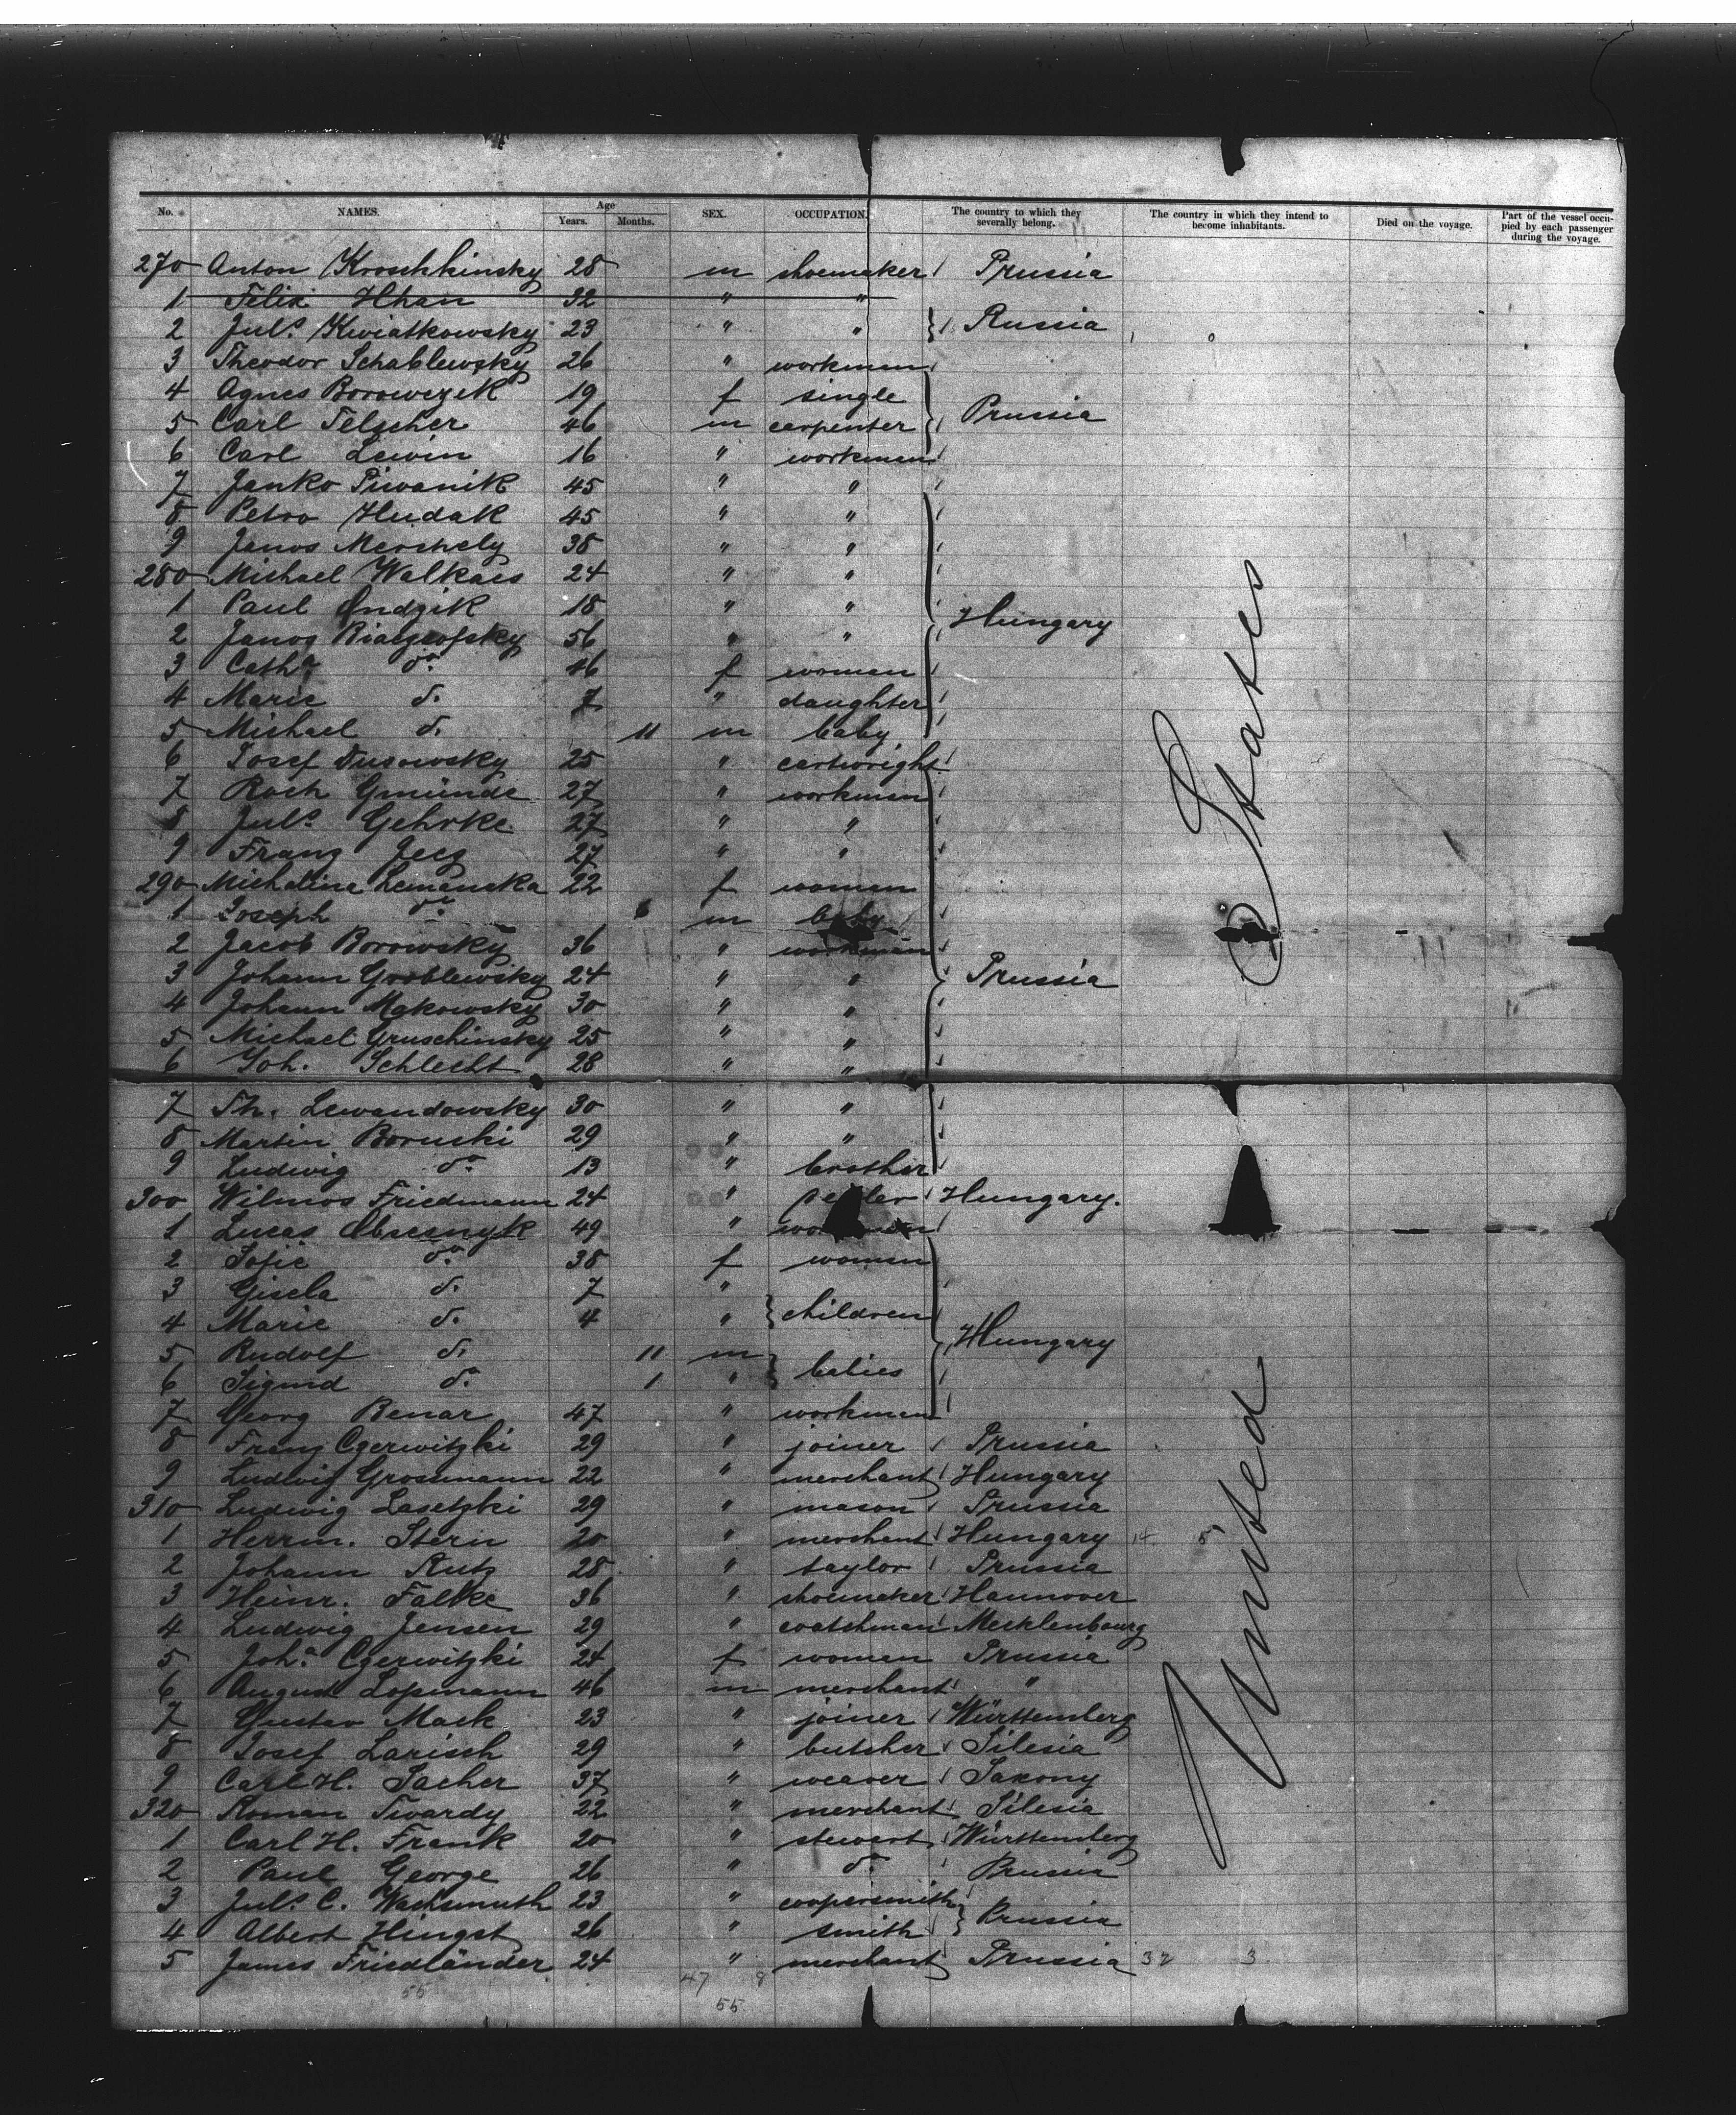 No. NAMES. Age Years. Months. SEX. OCCUPATION. The country to which they severally belong. The country in which they intend to become inhabitants. Died on the voyage. Part of the vessel occupied by each passenger during the voyage.
270 Anton Kroschkinsky 28 m shoemaker Prussia
1 Felix Hhan 32 " "
2 Juls. Kwiatkowsky 23 " " Russia
3 Theodor Schablewsky 26 " workman
4 Agnes Borowczek 19 f single
5 Carl Telscher 46 m carpenter Prussia
6 Carl Lewin 16 " workman
7 Janko Piwanik 45 " "
8 Petro Hudak 45 " "
9 Janos 38 " "
280 Michael Walkaes 24 " "
1 Paul Ondzik 18 " " Hungary
2 Janos 56 " "
3 Catha. do. 46 f woman
4 Marie d. 7 " daughter
5 Michael d. 11 m baby
6 Josef Dusowsky 25 " cartwright
7 Roch Gmünde 27 " workman
8 Juls. Gehrke 27 " "
9 Franz Jeez 27 " "
290 Michalina Lemanska 22 f woman
1 Joseph do. 6 m baby
2 Jacob Borowsky 36 " workman
3 Johann Groblewsky 24 " " Prussia
4 Johann Makowsky 30 " "
5 Michael Gruschinsky 25 " "
6 Joh. Schlecht 28 " "
7 Th. Lewandowsky 30 " "
8 Martin Boruski 29 " "
9 Ludwig do. 13 " brother
300 Wilmos Friedmann 24 " Hungary.
1 Lucas 49 " workman
2 Sofie do. 38 f woman
3 Gisela d. 7 "
4 Marie d. 4 " children
5 Rudolf d. 11 m Hungary
6 Sigmd do. 1 " babies
7 Georg Benar 47 " workman
8 Franz Czerwitzki 29 " joiner Prussia
9 Ludwig Grossmann 22 " merchant Hungary
310 Ludwig Lasetzki 29 " mason Prussia
1 Herrm. Stern 20 " merchant Hungary 14 5
2 Johann Rutz 28 " taylor Prussia
3 Heinr. Falke 36 " shoemaker Hannover
4 Ludwig Jensen 29 " Mecklenbourg
5 Joha. Czerwitzki 24 f woman Prussia
6 August Lopmann 46 m merchant "
7 Gustav Mack 23 " joiner Württemberg
8 Josef Larisch 29 " butcher Silesia
9 Carl H. Sacher 37 " weaver Saxony
320 Roman Twardy 22 " merchant Silesia
1 Carl H. Frank 20 " stewert Württemberg
2 Paul George 26 " do. Prussia
3 Juls. C. Wachsmuth 23 " coopersmith
4 Albert Hingst 26 " smith Prussia
5 James Friedländer 24 " merchant Prussia 32 3
55 47 8
55
United States